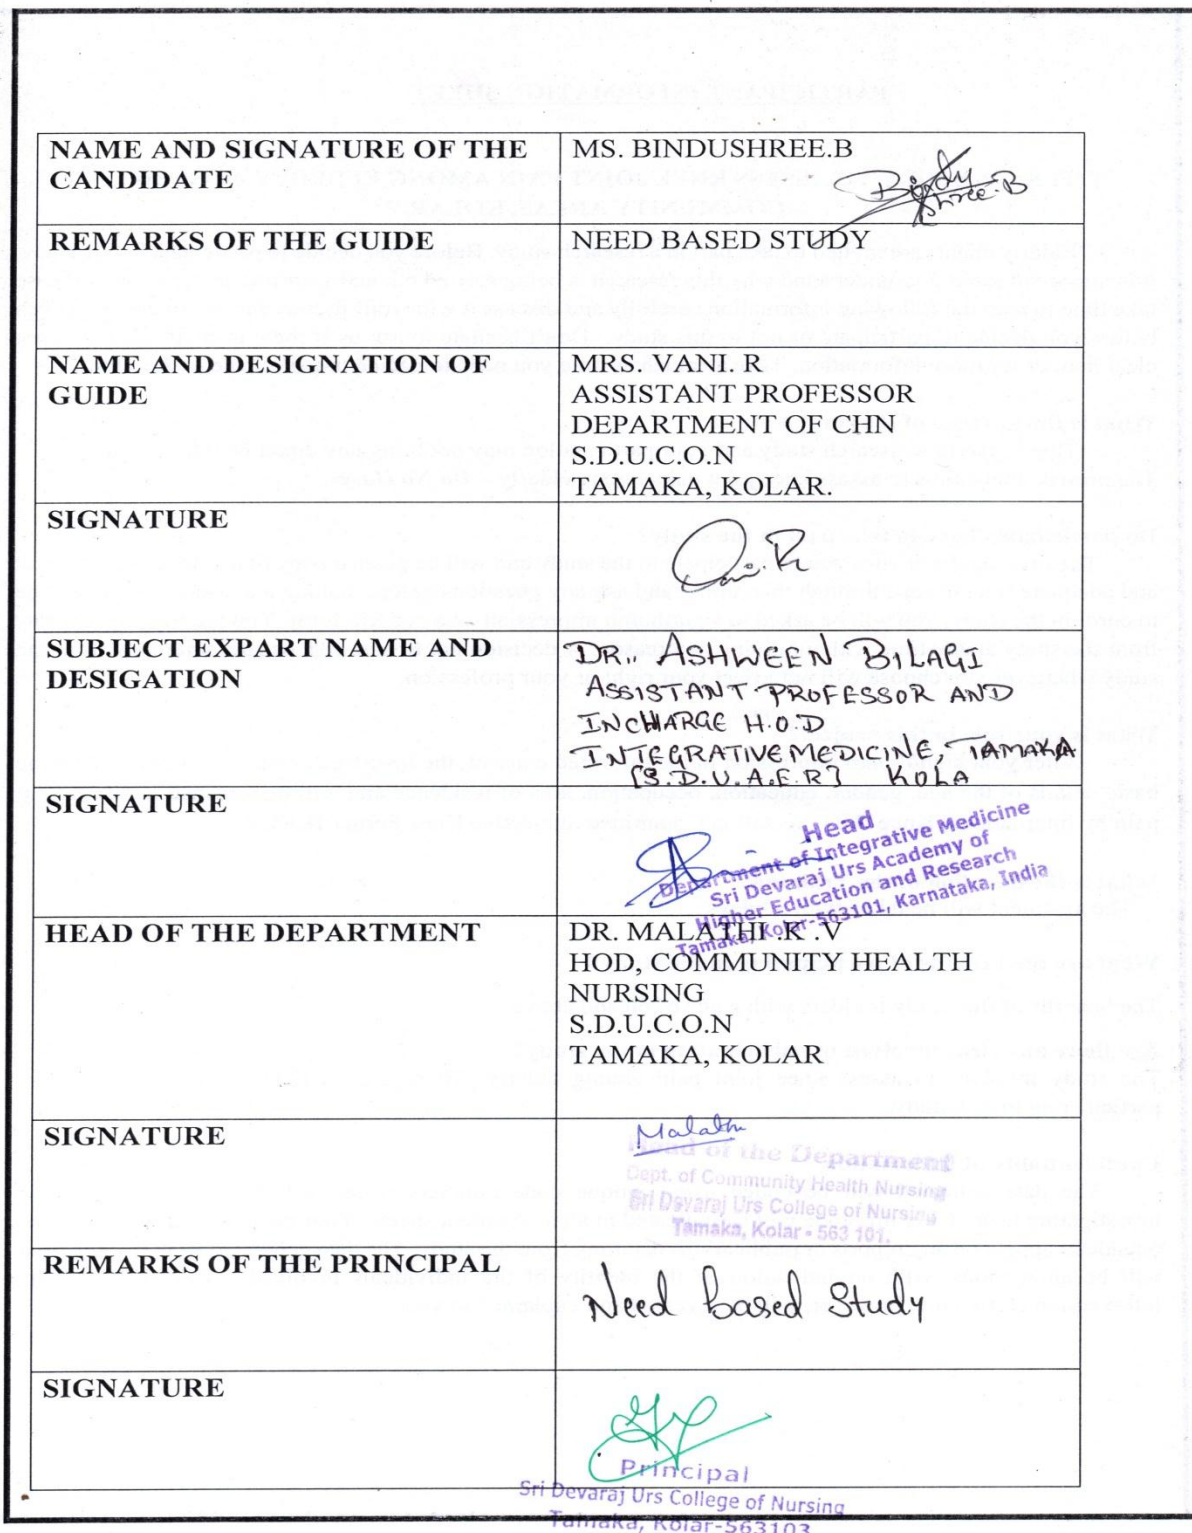 NAME AND SIGNATURE OF THE
CANDIDATE
MS. BINDUSHREE.B
Bindu
Shree.B
REMARKS OF THE GUIDE
NEED BASED STUDY
NAME AND DESIGNATION OF
GUIDE
MRS. VANI. R
ASSISTANT PROFESSOR
DEPARTMENT OF CHN
S.D.U.C.O.N
TAMAKA, KOLAR.
SIGNATURE
Vani.R
SUBJECT EXPART NAME AND
DESIGATION
DR., ASHWEEN BILAGI
ASSISTANT PROFESSOR AND
INCHARGE H.O.D
INTEGRATIVE MEDICINE, TAMAKA
[S.D.U.A.E.R] KOLA
SIGNATURE
Head
Department of Integrative Medicine
Sri Devaraj Urs Academy of
Higher Education and Research
Tamaka, Kolar-563101, Karnataka, India
HEAD OF THE DEPARTMENT
DR. MALATHI.R .V
HOD, COMMUNITY HEALTH
NURSING
S.D.U.C.O.N
TAMAKA, KOLAR
SIGNATURE
Malathi
Head of the Department
Dept. of Community Health Nursing
Sri Devaraj Urs College of Nursing
Tamaka, Kolar - 563 101.
REMARKS OF THE PRINCIPAL
Need based Study
SIGNATURE
Principal
Sri Devaraj Urs College of Nursing
Tamaka, Kolar-563103